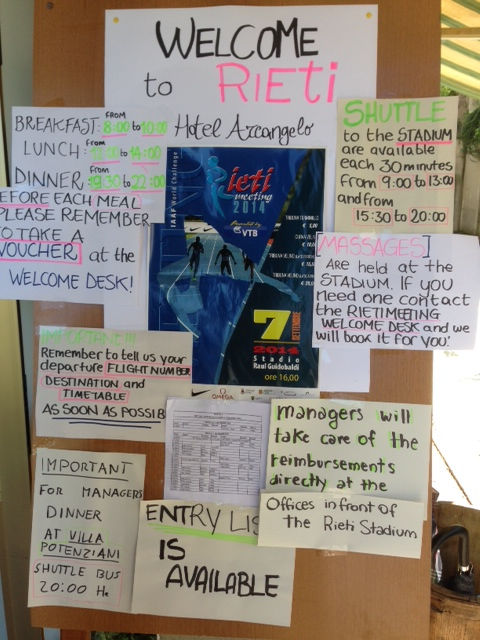 WELCOME
to RIETI
Hotel Arcangelo
BREAKFAST: from 8:00 to 10:00
LUNCH: to 14:00
DINNER: 19:30 to 22:00
BEFORE EACH MEAL
PLEASE REMEMBER
TO TAKE A
VOUCHER at the
WELCOME DESK!
SHUTTLE
to the STADIUM
are available
each 30 minutes
from 9:00 to 13:00
and from
15:30 to 20:00
IAAF World Challenge
rieti
meeting
2014
VTB
7
SETTEMBRE
2014
Stadio
Raul Guidobaldi
ore 16,00
OMEGA
[MASSAGES]
ARE held at the
STADIUM. IF you
need one contact
the RIETIMEETING
WELCOME DESK and we
will book it for you!
IMPORTANT!!!
Remember to tell us your
departure FLIGHT NUMBER
DESTINATION and
TIMETABLE
AS SOON AS POSSIB
managers will
take care of the
reimbursements
directly at the
Offices in front of
the Rieti Stadium
IMPORTANT
FOR MANAGERS
DINNER
AT VILLA
POTENZIANI
SHUTTLE BUS
20:00 H
ENTRY LIS
IS
AVAILABLE